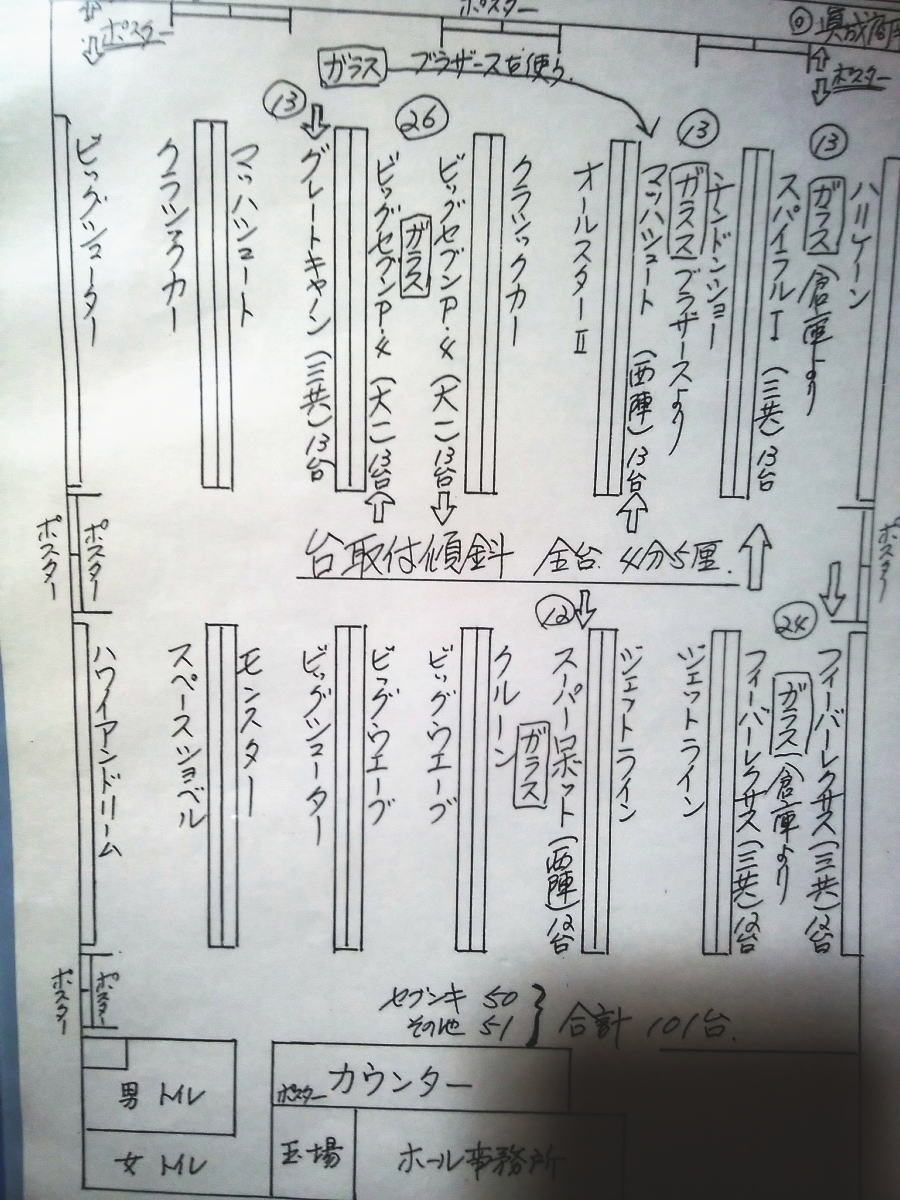 ポスター
ポスター
ガラス ブラザースを使う.
ポスター
13
26
13
13
ビッグシューター
クラシックカー
マッハシュート
グレートキャノン (三共) 13台
ビッグセブンP.4 (大一) 13台
ガラス
ビッグセブンP.4 (大一) 13台
クラシックカー
オールスターⅡ
マッハシュート (西陣) 13台
ガラス ブラザースより
チンドンショー
スパイラルⅠ (三共) 13台
ガラス 倉庫より
ハリケーン
ポスター
ポスター
台取付傾斜 全台. 4分5厘.
ポスター
12
24
ハワイアンドリーム
スペースショベル
モンスター
ビッグシューター
ビッグウエーブ
ビッグウエーブ
クルーン
ガラス
スーパーロボット (西陣) 12台
ジェットライン
ジェットライン
フィーバーレクサス (三共) 12台
ガラス 倉庫より
フィーバーレクサス (三共) 12台
ポスター
ポスター
セブンキ 50
その他 51
合計 101台.
男 トイレ
女 トイレ
ポスター カウンター
玉場
ホール事務所